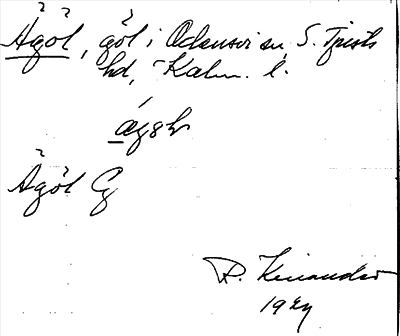 Ågöl, göl i Odensvi sn, S. Tjusts
hd, Kalm. l.
Ågöl Cg
R. Kinander
1927